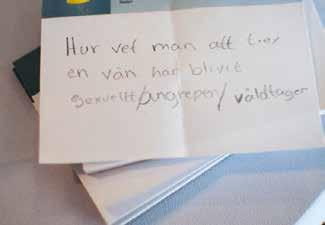 Hur vet man att t.ex
en vän har blivit
sexuellt/angrepen/våldtagen